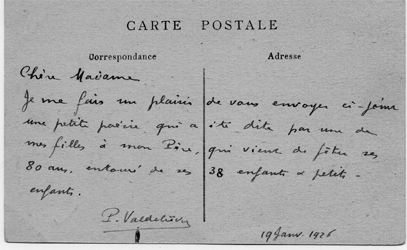 CARTE POSTALE
Correspondance
Adresse
Chère Madame
Je me fais un plaisir de vous envoyer ci-joint
une petite poésie, qui a été dite par une de
mes filles à mon Père, qui vient de fêter ses
80 ans, entouré de ses 38 enfants & petits-
enfants.
P.
19 Janv. 1926